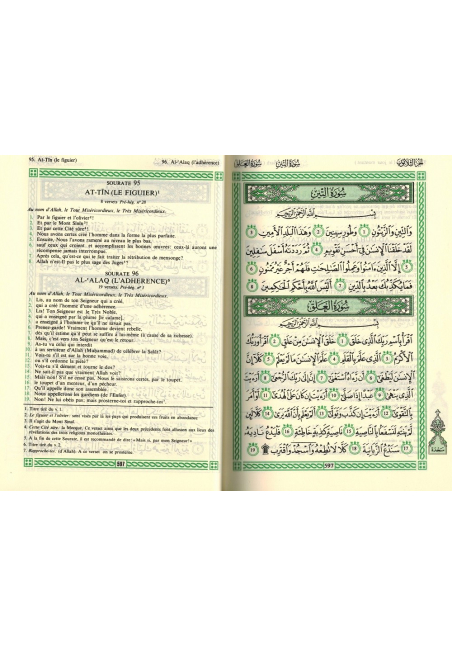 95. At-Tîn (le figuier)
96. Al-'Alaq (l'adhérence)
SOURATE 95
AT-TÎN (LE FIGUIER)¹
8 versets Pré-hég. n° 28
Au nom d'Allah, le Tout Miséricordieux, le Très Miséricordieux.
1. Par le figuier et l'olivier!²
2. Et par le Mont Sinîn³!
3. Et par cette Cité sûre⁴!
4. Nous avons certes créé l'homme dans la forme la plus parfaite.
5. Ensuite, Nous l'avons ramené au niveau le plus bas,
6. sauf ceux qui croient et accomplissent les bonnes œuvres: ceux-là auront une
récompense jamais interrompue.
7. Après cela, qu'est-ce qui te fait traiter la rétribution de mensonge?
8. Allah n'est-Il pas le plus sage des Juges?
SOURATE 96
AL-'ALAQ (L'ADHERENCE)
19 versets Pré-hég. n° 1
Au nom d'Allah, le Tout Miséricordieux, le Très Miséricordieux.
1. Lis, au nom de ton Seigneur qui a créé,
2. qui a créé l'homme d'une adhérence.
3. Lis! Ton Seigneur est le Très Noble,
4. qui a enseigné par la plume [le calame],
5. a enseigné à l'homme ce qu'il ne savait pas.
6. Prenez-garde! Vraiment l'homme devient rebelle,
7. dès qu'il estime qu'il peut se suffire à lui-même (à cause de sa richesse).
8. Mais, c'est vers ton Seigneur qu'est le retour.
9. As-tu vu celui qui interdit
10. à un serviteur d'Allah (Muhammad) de célébrer la Salât?
11. Vois-tu s'il est sur la bonne voie,
12. ou s'il ordonne la piété?
13. Vois-tu s'il dément et tourne le dos?
14. Ne sait-il pas que vraiment Allah voit?
15. Mais non! S'il ne cesse pas, Nous le saisirons certes, par le toupet,
16. le toupet d'un menteur, d'un pécheur.
17. Qu'il appelle donc son assemblée.
18. Nous appellerons les gardiens (de l'Enfer)
19. Non! Ne lui obéis pas; mais prosterne-toi et rapproche-toi
1. Titre tiré du v. 1.
597
سورة التين
سورة العلق
سُورَةُ التِّينِ
بِسْمِ اللَّهِ الرَّحْمَٰنِ الرَّحِيمِ
وَالتِّينِ وَالزَّيْتُونِ ١ وَطُورِ سِينِينَ ٢ وَهَٰذَا الْبَلَدِ الْأَمِينِ ٣
لَقَدْ خَلَقْنَا الْإِنسَانَ فِي أَحْسَنِ تَقْوِيمٍ ٤ ثُمَّ رَدَدْنَاهُ أَسْفَلَ سَافِلِينَ
٥ إِلَّا الَّذِينَ آمَنُوا وَعَمِلُوا الصَّالِحَاتِ فَلَهُمْ أَجْرٌ غَيْرُ مَمْنُونٍ
٦ فَمَا يُكَذِّبُكَ بَعْدُ بِالدِّينِ ٧ أَلَيْسَ اللَّهُ بِأَحْكَمِ الْحَاكِمِينَ ٨
سُورَةُ الْعَلَقِ
بِسْمِ اللَّهِ الرَّحْمَٰنِ الرَّحِيمِ
اقْرَأْ بِاسْمِ رَبِّكَ الَّذِي خَلَقَ ١ خَلَقَ الْإِنسَانَ مِنْ عَلَقٍ ٢ اقْرَأْ وَرَبُّكَ
الْأَكْرَمُ ٣ الَّذِي عَلَّمَ بِالْقَلَمِ ٤ عَلَّمَ الْإِنسَانَ مَا لَمْ يَعْلَمْ ٥ كَلَّا إِنَّ
الْإِنسَانَ لَيَطْغَىٰ ٦ أَن رَّآهُ اسْتَغْنَىٰ ٧ إِنَّ إِلَىٰ رَبِّكَ الرُّجْعَىٰ ٨ أَرَأَيْتَ
الَّذِي يَنْهَىٰ ٩ عَبْدًا إِذَا صَلَّىٰ ١٠ أَرَأَيْتَ إِن كَانَ عَلَى الْهُدَىٰ ١١ أَوْ أَمَرَ
بِالتَّقْوَىٰ ١٢ أَرَأَيْتَ إِن كَذَّبَ وَتَوَلَّىٰ ١٣ أَلَمْ يَعْلَم بِأَنَّ اللَّهَ يَرَىٰ ١٤ كَلَّا لَئِن
لَّمْ يَنتَهِ لَنَسْفَعًا بِالنَّاصِيَةِ ١٥ نَاصِيَةٍ كَاذِبَةٍ خَاطِئَةٍ ١٦ فَلْيَدْعُ نَادِيَهُ ١٧
سَنَدْعُ الزَّبَانِيَةَ ١٨ كَلَّا لَا تُطِعْهُ وَاسْجُدْ وَاقْتَرِب ١٩
597